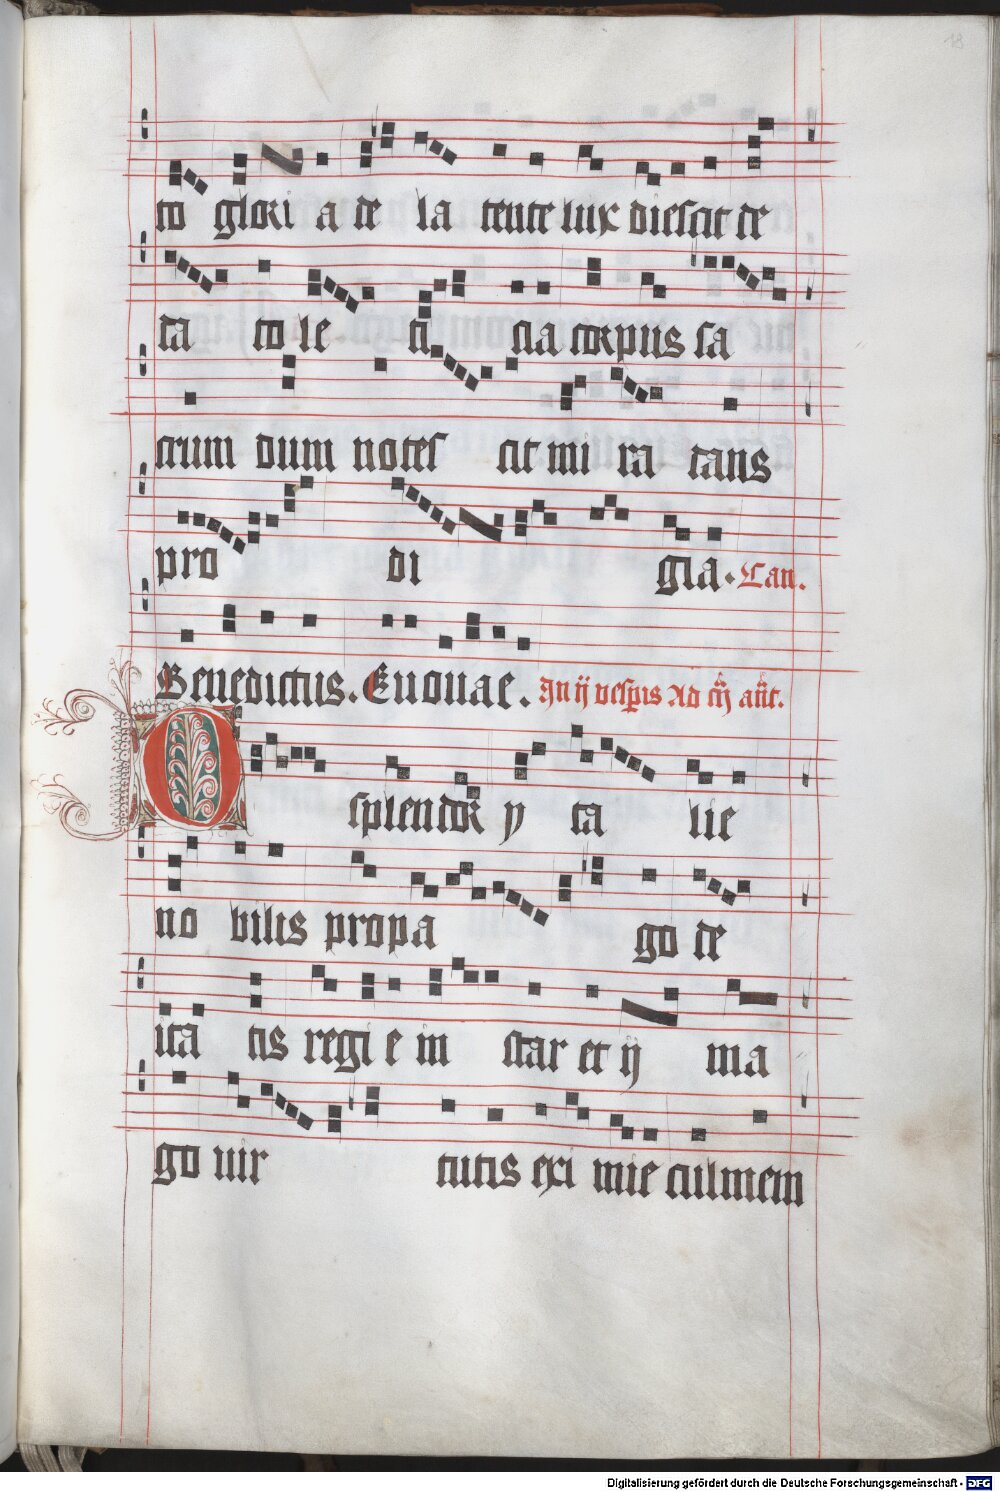 18
to glori a de la tente lux diescit de
ta to le ti tia corpus sa
crum dum notes cit mi ra tans
pro di gia. Can.
Benedictus. Euouae. In ij vesp̄is Ad m̄ ant̄.
O splendor y ta lie
no bilis propa go de
ita tis regi e in star et ij ma
go uir tutis exi mie culmem
Digitalisierung gefördert durch die Deutsche Forschungsgemeinschaft - DFG